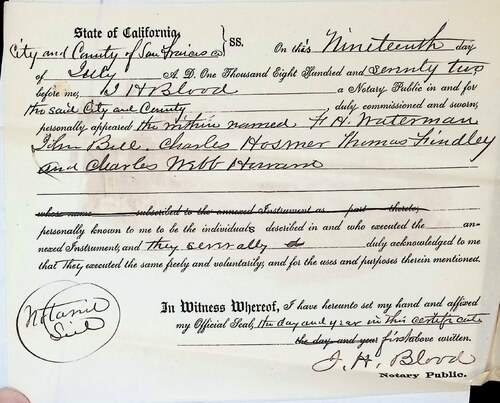 State of California,
City and County of San Francisco } ss.
On this Nineteenth day
of July A. D. One Thousand Eight Hundred and seventy two
before me, J H Blood a Notary Public in and for
the said City and County duly commissioned and sworn,
personally appeared the within named F. H. Waterman
John Bell, Charles Hosmer Thomas Findley
and Charles Webb Howard
whose name subscribed to the annexed Instrument as part thereto,
personally known to me to be the individuals described in and who executed the an-
nexed Instrument, and they severally duly acknowledged to me
that they executed the same freely and voluntarily, and for the uses and purposes therein mentioned.
Notarial
Seal
In Witness Whereof, I have hereunto set my hand and affixed
my Official Seal, the day and year in this certificate
the day and year first above written.
J. H. Blood
Notary Public.